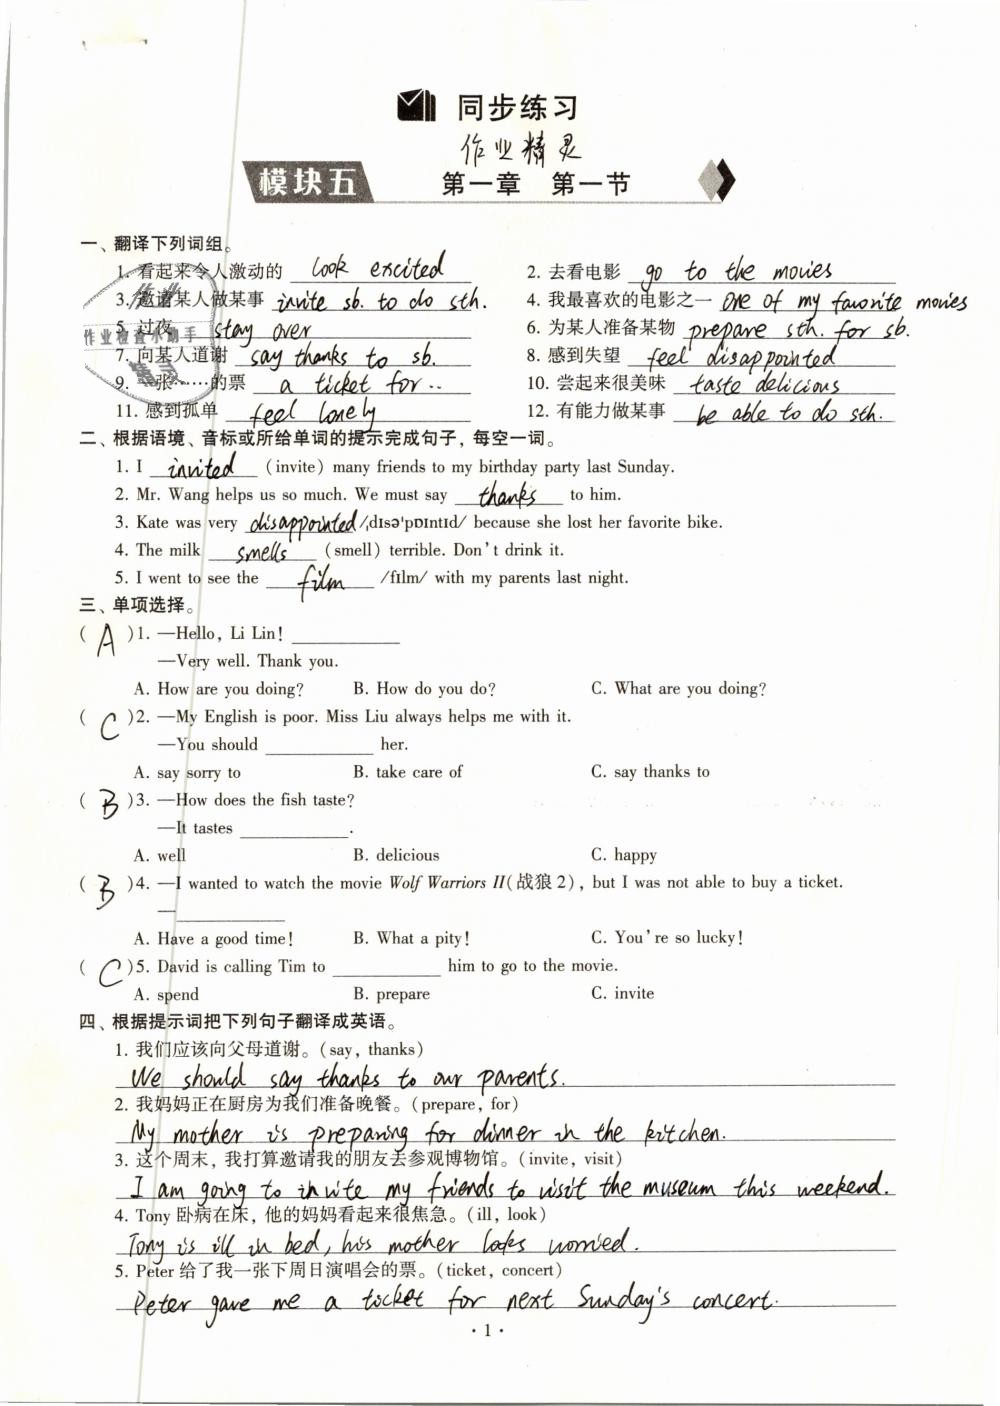 同步练习
作业精灵
模块五 第一章 第一节
一、翻译下列词组。
1. 看起来令人激动的 look excited 2. 去看电影 go to the movies
3. 邀请某人做某事 invite sb. to do sth. 4. 我最喜欢的电影之一 one of my favorite movies
5. 过夜 stay over 6. 为某人准备某物 prepare sth. for sb.
7. 向某人道谢 say thanks to sb. 8. 感到失望 feel disappointed
9. 一张……的票 a ticket for.. 10. 尝起来很美味 taste delicious
11. 感到孤单 feel lonely 12. 有能力做某事 be able to do sth.
作业
作业检查小助手
精灵
二、根据语境、音标或所给单词的提示完成句子，每空一词。
1. I invited (invite) many friends to my birthday party last Sunday.
2. Mr. Wang helps us so much. We must say thanks to him.
3. Kate was very disappointed /ˌdɪsə'pɒɪntɪd/ because she lost her favorite bike.
4. The milk smells (smell) terrible. Don't drink it.
5. I went to see the film /fɪlm/ with my parents last night.
三、单项选择。
( A )1. —Hello, Li Lin! ____________
—Very well. Thank you.
A. How are you doing? B. How do you do? C. What are you doing?
( C )2. —My English is poor. Miss Liu always helps me with it.
—You should ____________ her.
A. say sorry to B. take care of C. say thanks to
( B )3. —How does the fish taste?
—It tastes ____________.
A. well B. delicious C. happy
( B )4. —I wanted to watch the movie Wolf Warriors II(战狼2), but I was not able to buy a ticket.
—____________
A. Have a good time! B. What a pity! C. You're so lucky!
( C )5. David is calling Tim to ____________ him to go to the movie.
A. spend B. prepare C. invite
四、根据提示词把下列句子翻译成英语。
1. 我们应该向父母道谢。(say, thanks)
We should say thanks to our parents.
2. 我妈妈正在厨房为我们准备晚餐。(prepare, for)
My mother is preparing for dinner in the kitchen.
3. 这个周末，我打算邀请我的朋友去参观博物馆。(invite, visit)
I am going to invite my friends to visit the museum this weekend.
4. Tony 卧病在床，他的妈妈看起来很焦急。(ill, look)
Tony is ill in bed, his mother looks worried.
5. Peter 给了我一张下周日演唱会的票。(ticket, concert)
Peter gave me a ticket for next Sunday's concert.
· 1 ·